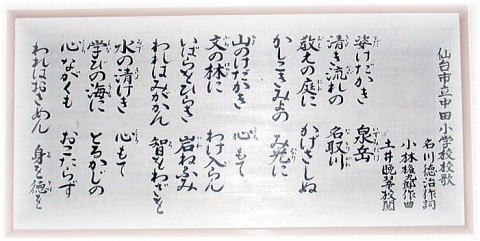 仙台市立中田小学校校歌
名川徳治作詞
小林権九郎作曲
土井晩翠校閲
姿けだかき 泉岳
清き流れの 名取川
教えの庭に かげさしぬ
かしこきみよの み光に
山のけだかき 心もて
文の林に わけ入らん
いばらをひらき 岩ねふみ
われはみがかん 智とわざを
水の清けき 心もて
学びの海に とるかじの
心ながくも おこたらず
われはおさめん 身と徳を